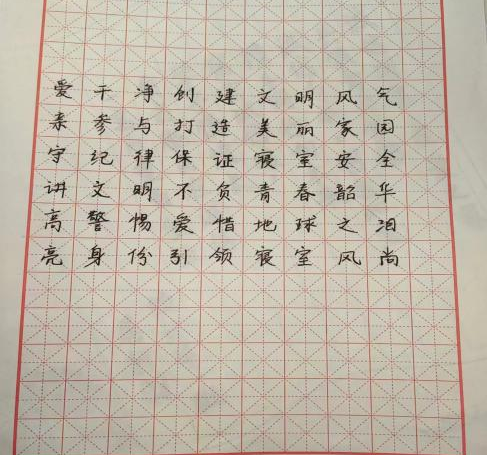 爱干净创建文明风气
亲参与打造美丽家园
守纪律保证寝室安全
讲文明不负青春韶华
高警惕爱惜地球之泪
亮身份引领寝室风尚